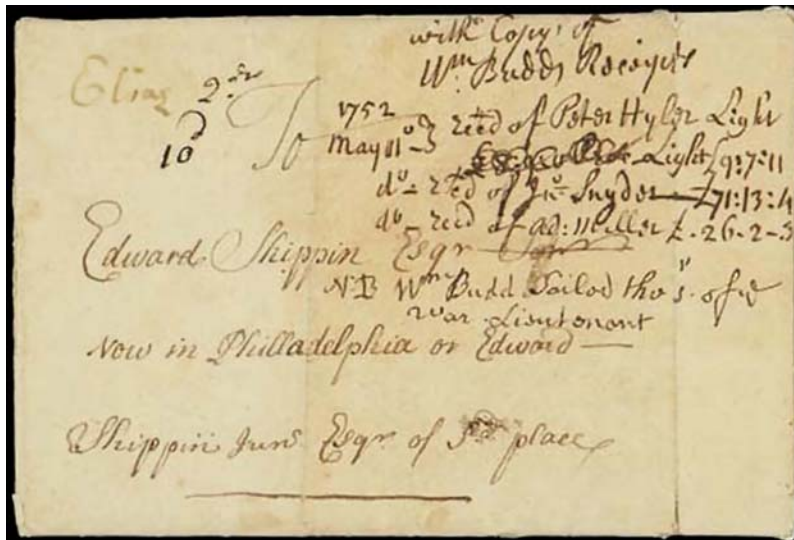 with Copy of
Wm. Budds Receipts
Eliz
10
To
1752
May 11 recd of Peter Hyler Light
Light 9:7:11
do recd of Jno Snyder £71:13:4
do recd of ad: Miller £. 26-2-3
Edward Shippin Esqr
NB Wm Budd Sailed
war Lieutenant
Now in Philladelphia or Edward
Shippin Junr Esqr of sd place